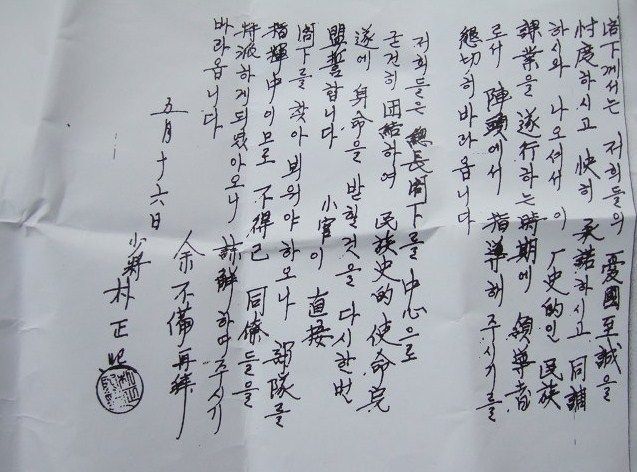 閣下께서는 저희들의 憂國至誠을
忖度하시고 快히 承諾하시고 同調
하시와 나오셔서 이 厂史的인 民族
課業을 遂行하는 時期에 領導者
로서 陣頭에서 指導해 주시기를
懇切히 바라옵니다
저희들은 總長閣下를 中心으로
굳건히 団結하여 民族史的 使命完
遂에 身命을 받할것을 다시한번
盟誓합니다 小官이 直接
閣下를 찾아 뵈워야 하오나 部隊를
指揮中이므로 不得已 同僚들을
特派하게되였아오니 諒解하여주시기
바라옵니다
余不備再拜
五月十六日
少將 朴正熙